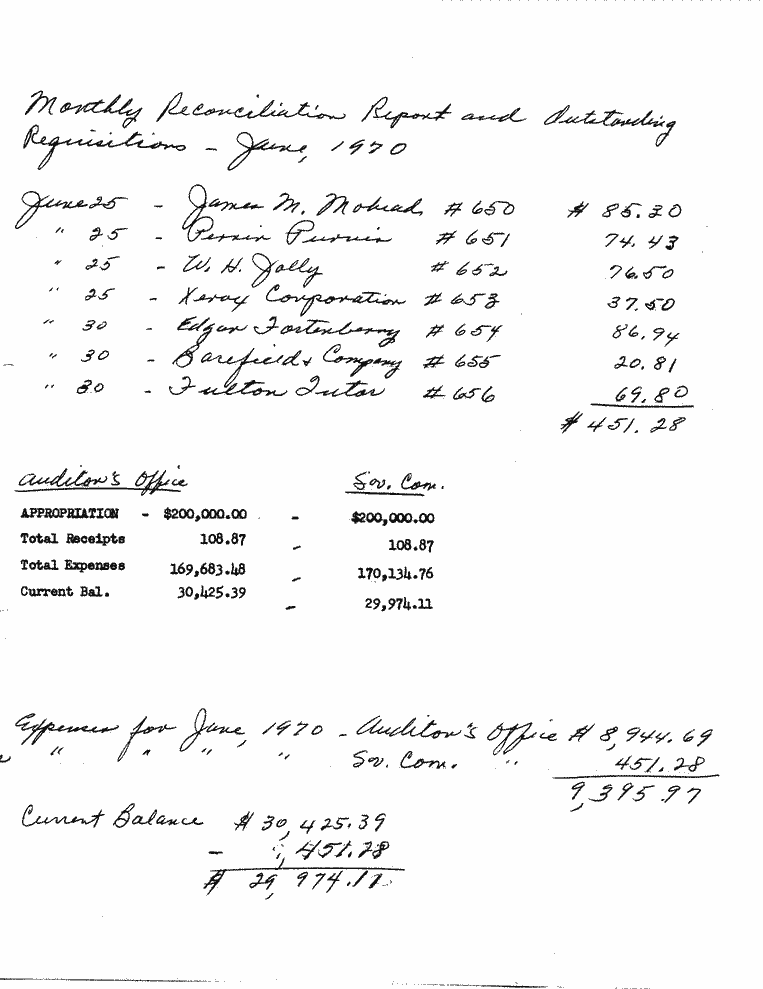 Monthly Reconciliation Report and Outstanding
Requisitions - June, 1970
June 25 - James M. Mohead # 650 $ 85.30
" 25 - Purvis # 651 74.43
" 25 - W. H. Jolly # 652 76.50
" 25 - Xerox Corporation # 653 37.50
" 30 - Edgar Fortenberry # 654 86.94
" 30 - Barefield & Company # 655 20.81
" 30 - Fulton Tutor # 656 69.80
$ 451.28
Auditor's Office Sov. Com.
APPROPRIATION - $200,000.00 - $200,000.00
Total Receipts 108.87 - 108.87
Total Expenses 169,683.48 - 170,134.76
Current Bal. 30,425.39 - 29,974.11
Expenses for June, 1970 - Auditor's Office $ 8,944.69
" " " " Sov. Com. " 451.28
9,395.97
Current Balance $ 30,425.39
- 451.28
$ 29,974.11